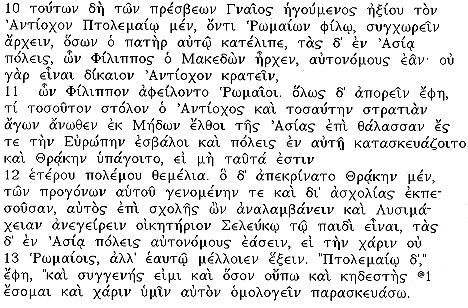 10 τούτων δὴ τῶν πρέσβεων Γναῖος ἡγούμενος ἠξίου τὸν
Ἀντίοχον Πτολεμαίῳ μέν, ὄντι Ῥωμαίων φίλῳ, συγχωρεῖν
ἄρχειν, ὅσων ὁ πατὴρ αὐτῷ κατέλιπε, τὰς δ' ἐν Ἀσίᾳ
πόλεις, ὧν Φίλιππος ὁ Μακεδὼν ἦρχεν, αὐτονόμους ἐᾶν· οὐ
γὰρ εἶναι δίκαιον Ἀντίοχον κρατεῖν,
11 ὧν Φίλιππον ἀφείλοντο Ῥωμαῖοι. ὅλως δ' ἀπορεῖν ἔφη,
τί τοσοῦτον στόλον ὁ Ἀντίοχος καὶ τοσαύτην στρατιὰν
ἄγων ἄνωθεν ἐκ Μήδων ἔλθοι τῆς Ἀσίας ἐπὶ θάλασσαν ἔς
τε τὴν Εὐρώπην ἐσβάλοι καὶ πόλεις ἐν αὐτῇ κατασκευάζοιτο
καὶ Θρᾴκην ὑπάγοιτο, εἰ μὴ ταῦτά ἐστιν
12 ἑτέρου πολέμου θεμέλια. ὃ δ' ἀπεκρίνατο Θρᾴκην μέν,
τῶν προγόνων αὑτοῦ γενομένην τε καὶ δι' ἀσχολίας ἐκπε-
σοῦσαν, αὐτὸς ἐπὶ σχολῆς ὢν ἀναλαμβάνειν καὶ Λυσιμά-
χειαν ἀνεγείρειν οἰκητήριον Σελεύκῳ τῷ παιδὶ εἶναι, τὰς
δ' ἐν Ἀσίᾳ πόλεις αὐτονόμους ἐάσειν, εἰ τὴν χάριν οὐ
13 Ῥωμαίοις, ἀλλ' ἑαυτῷ μέλλοιεν ἕξειν. "Πτολεμαίῳ δ',"
ἔφη, "καὶ συγγενής εἰμι καὶ ὅσον οὔπω καὶ κηδεστὴς @1
ἔσομαι καὶ χάριν ὑμῖν αὐτὸν ὁμολογεῖν παρασκευάσω.